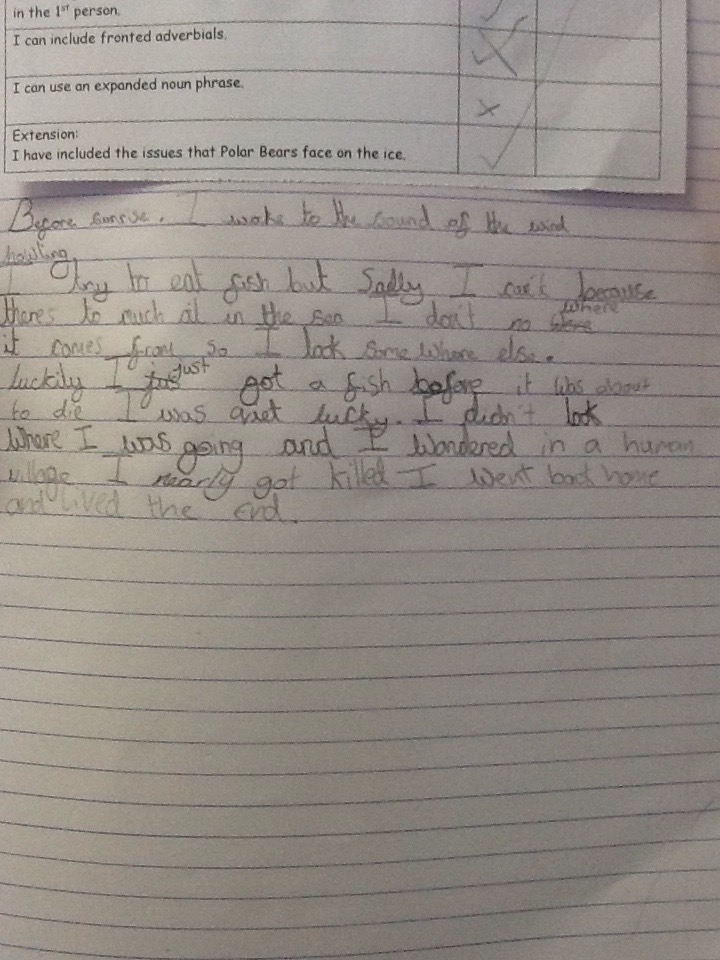 in the 1st person.
I can include fronted adverbials.
I can use an expanded noun phrase.
Extension:
I have included the issues that Polar Bears face on the ice.
Before sunrise. I woke to the sound of the wind
howling.
I try to eat fish but Sadly I can't because
theres to much oil in the sea I don't no where
it comes from so I look some where else.
luckily I just got a fish before it was about
to die I was quiet lucky. I didn't look
Where I was going and I wandered in a human
village I nearly got killed I went back home
and lived the end.